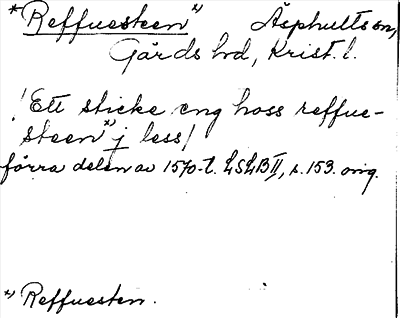 *Reffuesteen*) Äsphults sn,
Gärds hd, Krist. l.
! Ett sticke eng hoss reffue-
steen*) j less/
förra delen av 1570-t. LSLB II, s. 153. orig.
*) Reffuesten.